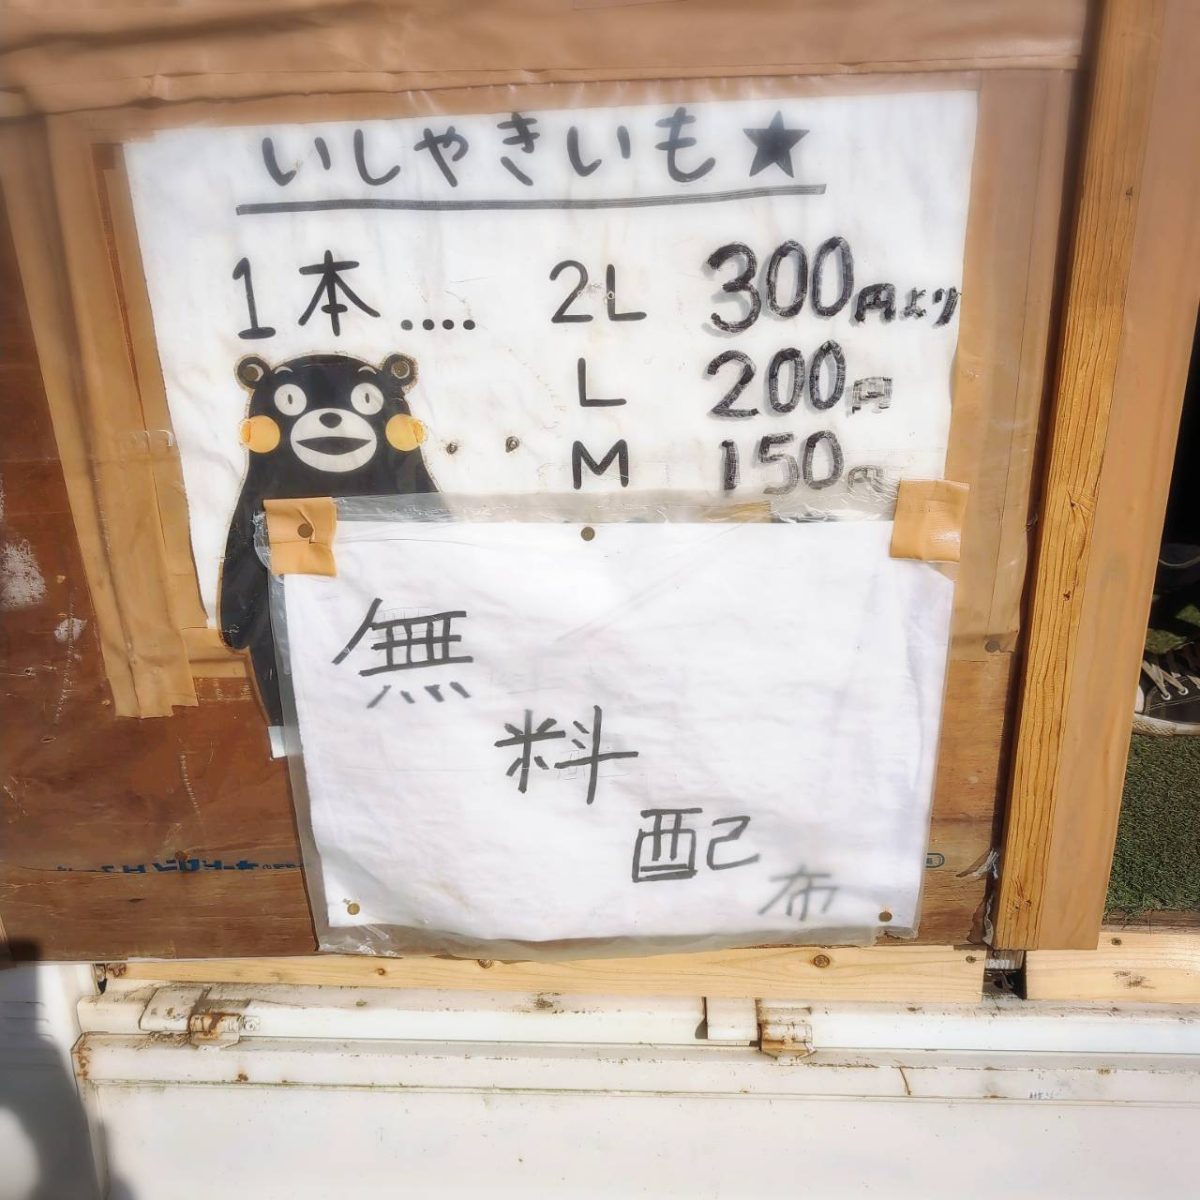 いしゃきいも★
1本.... 2L 300円より
L 200円
M 150円
無料配布